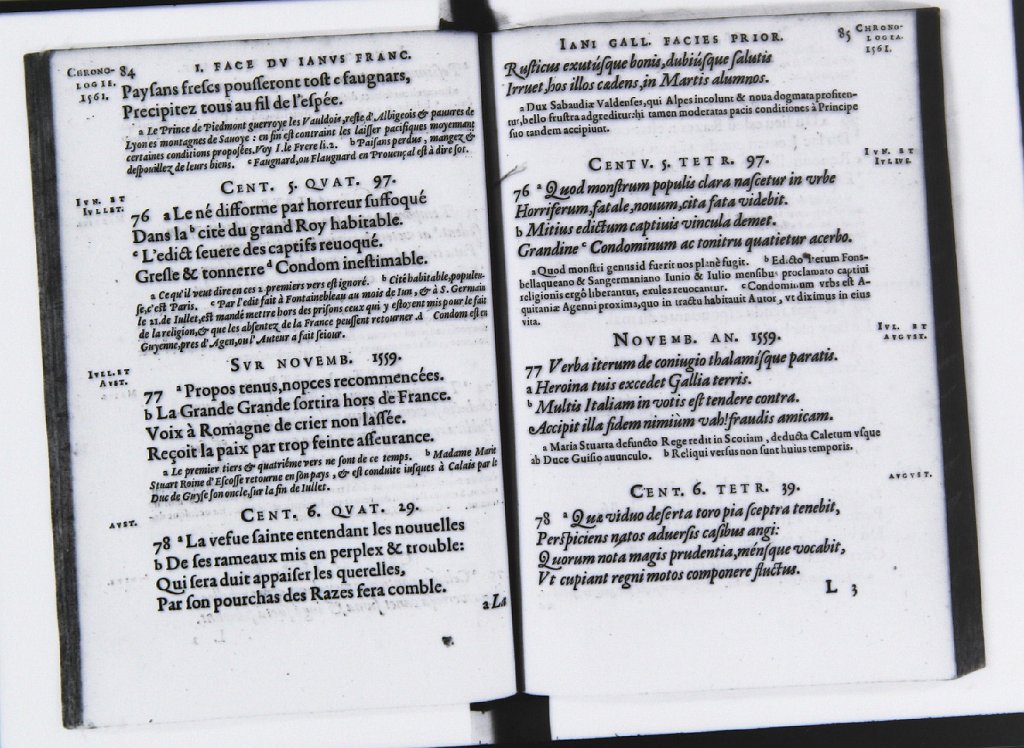 CHRONO-
LOGIE.
1561.
84
I. FACE DV IANVS FRANC.
Paysans frescs pousseront tost c faugnars,
Precipitez tous au fil de l'espée.
a Le Prince de Piedmont guerroye les Vauldois, reste d'Albigeois & pauures de
Lyon es montagnes de Sauoye : en fin est contraint les laisser pacifiques moyennant
certaines conditions proposées. Voy I. le Frere li. 2. b Paisans perdus, mangez &
despouillez de leurs biens. c Faugnard, ou Flaugnard en Prouençal est à dire sot.
CENT. 5. QVAT. 97.
IVN. ET
IVLLET.
76 a Le né difforme par horreur suffoqué
Dans la b cité du grand Roy habitable.
c L'edict seuere des captifs reuoqué.
Gresle & tonnerre d Condom inestimable.
a Ce qu'il veut dire en ces 2. premiers vers est ignoré. b Cité habitable, populeu-
se, c'est Paris. c Par l'edit fait à Fontainebleau au mois de Iun, & à S. Germain
le 21. de Iullet, est mandé mettre hors des prisons ceux qui y estoyent mis pour le fait
de la religion, & que les absentez de la France peussent retourner. d Condom est en
Guyenne, pres d'Agen, ou l'Auteur a fait seiour.
SVR NOVEMB. 1559.
IVLL. ET
AVST.
77 a Propos tenus, nopces recommencées.
b La Grande Grande sortira hors de France.
Voix à Romagne de crier non lassée.
Reçoit la paix par trop feinte asseurance.
a Le premier tiers & quatriéme vers ne sont de ce temps. b Madame Marie
Stuart Roine d'Escosse retourne en son pays, & est conduite iusques à Calais par le
Duc de Guyse son oncle, sur la fin de Iullet.
CENT. 6. QVAT. 29.
AVST.
78 a La vefue sainte entendant les nouuelles
b De ses rameaux mis en perplex & trouble:
Qui sera duit appaiser les querelles,
Par son pourchas des Razes fera comble.
a La
IANI GALL. FACIES PRIOR.
85
CHRONO-
LOGIA.
1561.
Rusticus exutúsque bonis, dubiúsque salutis
Irruet, hos illos cædens, in Martis alumnos.
a Dux Sabaudiæ Valdenses, qui Alpes incolunt & noua dogmata profiten-
tur, bello frustra adgreditur: hi tamen moderatas pacis conditiones à Principe
suo tandem accipiunt.
CENTV. 5. TETR. 97.
IVN. ET
IVLIVS.
76 a Quod monstrum populis clara nascetur in vrbe
Horriferum, fatale, nouum, cita fata videbit.
b Mitius edictum captiuis vincula demet.
Grandine c Condominum ac tonitru quatietur acerbo.
a Quod monstri genus id fuerit nos planè fugit. b Edicto iterum Fons-
bellaqueano & Sangermaniano Iunio & Iulio mensibus proclamato captiui
religionis ergò liberantur, exules reuocantur. c Condominum vrbs est A-
quitaniæ Agenni proxima, quo in tractu habitauit Autor, vt diximus in eius
vita.
NOVEMB. AN. 1559.
IVL. ET
AVGVST.
77 Verba iterum de coniugio thalamísque paratis.
a Heroina tuis excedet Gallia terris.
b Multis Italiam in votis est tendere contra.
Accipit illa fidem nimiùm vah! fraudis amicam.
a Maria Stuarta defuncto Rege redit in Scotiam, deducta Caletum vsque
ab Duce Guisio auunculo. b Reliqui versus non sunt huius temporis.
AVGVST.
CENT. 6. TETR. 39.
78 a Quæ viduo deserta toro pia sceptra tenebit,
Perspiciens natos aduersis casibus angi:
Quorum nota magis prudentia, ménsque vocabit,
Vt cupiant regni motos componere fluctus.
L 3